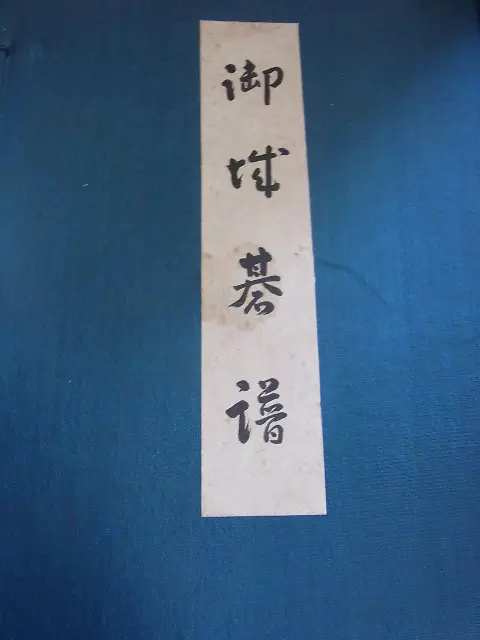 御城碁譜